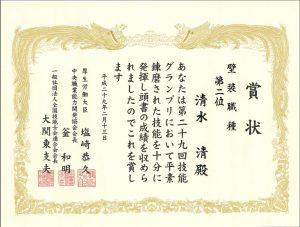 賞状
壁装職種
第二位
清水 清殿
あなたは第二十九回技能
グランプリにおいて平素
錬磨された技能を十分に
発揮し頭書の成績を収めら
れましたのでこれを賞し
ます
平成二十九年二月十三日
厚生労働大臣 塩崎恭久
中央職業能力開発協会会長 釜 和明
一般社団法人全国技能士会連合会会長 大関東支夫